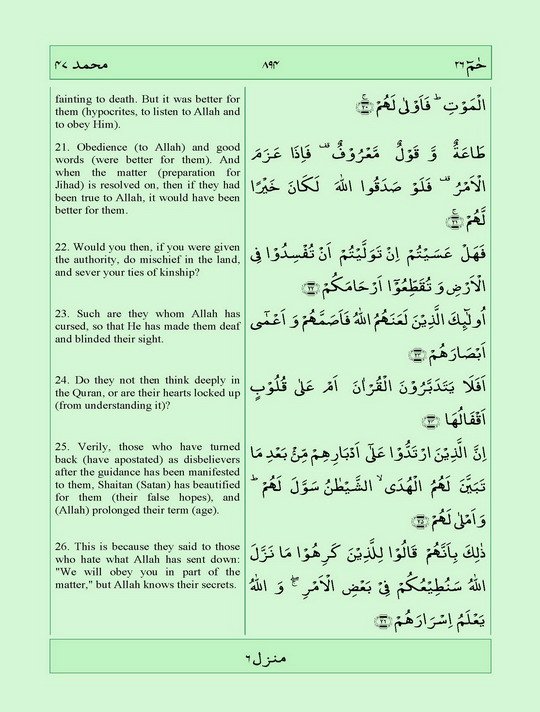 حٰمٓ ٢٦ ٨٩۴ محمد ۴٧
fainting to death. But it was better for
them (hypocrites, to listen to Allah and
to obey Him).
21. Obedience (to Allah) and good
words (were better for them). And
when the matter (preparation for
Jihad) is resolved on, then if they had
been true to Allah, it would have been
better for them.
22. Would you then, if you were given
the authority, do mischief in the land,
and sever your ties of kinship?
23. Such are they whom Allah has
cursed, so that He has made them deaf
and blinded their sight.
24. Do they not then think deeply in
the Quran, or are their hearts locked up
(from understanding it)?
25. Verily, those who have turned
back (have apostated) as disbelievers
after the guidance has been manifested
to them, Shaitan (Satan) has beautified
for them (their false hopes), and
(Allah) prolonged their term (age).
26. This is because they said to those
who hate what Allah has sent down:
"We will obey you in part of the
matter," but Allah knows their secrets.
الْمَوْتِ ؕ فَاَوْلٰى لَهُمْ ۚ
طَاعَةٌ وَّ قَوْلٌ مَّعْرُوْفٌ ۟ فَاِذَا عَزَمَ
الْاَمْرُ ۟ فَلَوْ صَدَقُوا اللّٰهَ لَكَانَ خَيْرًا
لَّهُمْ ۚ
فَهَلْ عَسَيْتُمْ اِنْ تَوَلَّيْتُمْ اَنْ تُفْسِدُوْا فِى
الْاَرْضِ وَ تُقَطِّعُوْۤا اَرْحَامَكُمْ
اُولٰٓٮِٕكَ الَّذِيْنَ لَعَنَهُمُ اللّٰهُ فَاَصَمَّهُمْ وَ اَعْمٰٓى
اَبْصَارَهُمْ
اَفَلَا يَتَدَبَّرُوْنَ الْقُرْاٰنَ اَمْ عَلٰى قُلُوْبٍ
اَقْفَالُهَا
اِنَّ الَّذِيْنَ ارْتَدُّوْا عَلٰٓى اَدْبَارِهِمْ مِّنْۢ بَعْدِ مَا
تَبَيَّنَ لَهُمُ الْهُدَى ۙ الشَّيْطٰنُ سَوَّلَ لَهُمْ ؕ
وَ اَمْلٰى لَهُمْ
ذٰلِكَ بِاَنَّهُمْ قَالُوْا لِلَّذِيْنَ كَرِهُوْا مَا نَزَّلَ
اللّٰهُ سَنُطِيْعُكُمْ فِىْ بَعْضِ الْاَمْرِ ۖ وَ اللّٰهُ
يَعْلَمُ اِسْرَارَهُمْ
منزل ٦